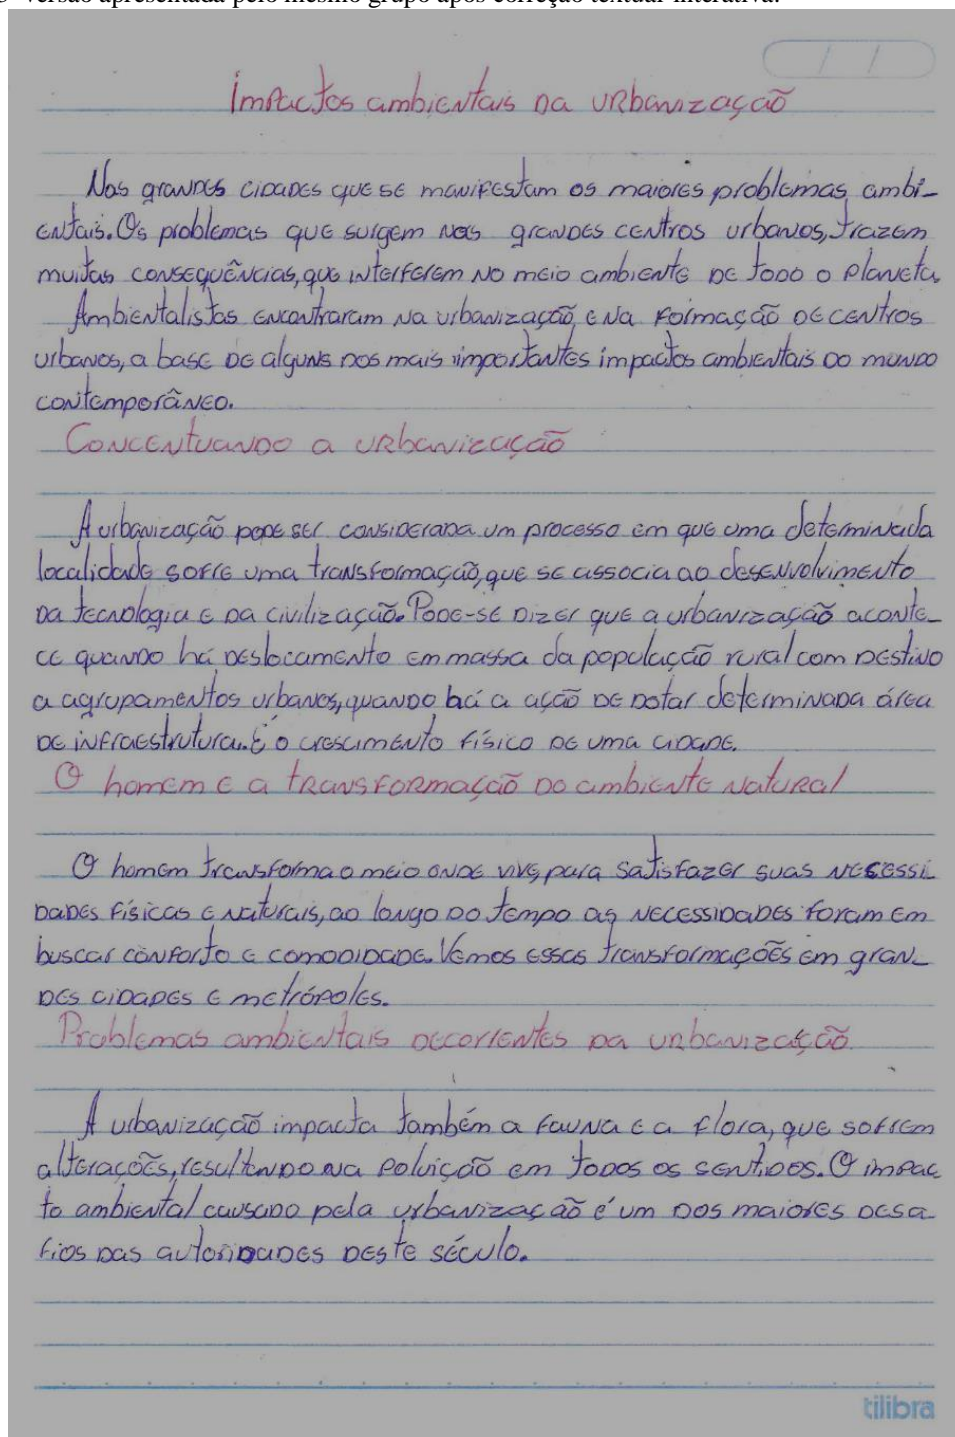 versão apresentada pelo mesmo grupo após correção textual interativa.
Impactos ambientais da urbanização
Nas grandes cidades que se manifestam os maiores problemas ambi-
entais. Os problemas que surgem nos grandes centros urbanos, trazem
muitas consequências, que interferem no meio ambiente de todo o planeta.
Ambientalistas encontraram na urbanização, e na formação de centros
urbanos, a base de alguns dos mais importantes impactos ambientais do mundo
contemporâneo.
Concentuando a urbanização
A urbanização pode ser considerada um processo em que uma determinada
localidade sofre uma transformação, que se associa ao desenvolvimento
da tecnologia e da civilização. Pode-se dizer que a urbanização aconte-
ce quando há deslocamento em massa da população rural com destino
a agrupamentos urbanos, quando há a ação de dotar determinada área
de infraestrutura. É o crescimento físico de uma cidade.
O homem e a transformação do ambiente natural
O homem transforma o meio onde vive, para satisfazer suas necessi
dades físicas e naturais, ao longo do tempo as necessidades foram em
buscar conforto e comodidade. Vemos essas transformações em gran-
des cidades e metrópoles.
Problemas ambientais decorrentes da urbanização
A urbanização impacta também a fauna e a flora, que sofrem
alterações, resultando na poluição em todos os sentidos. O impac
to ambiental causado pela urbanização é um dos maiores desa-
fios das autoridades deste século.
tilibra